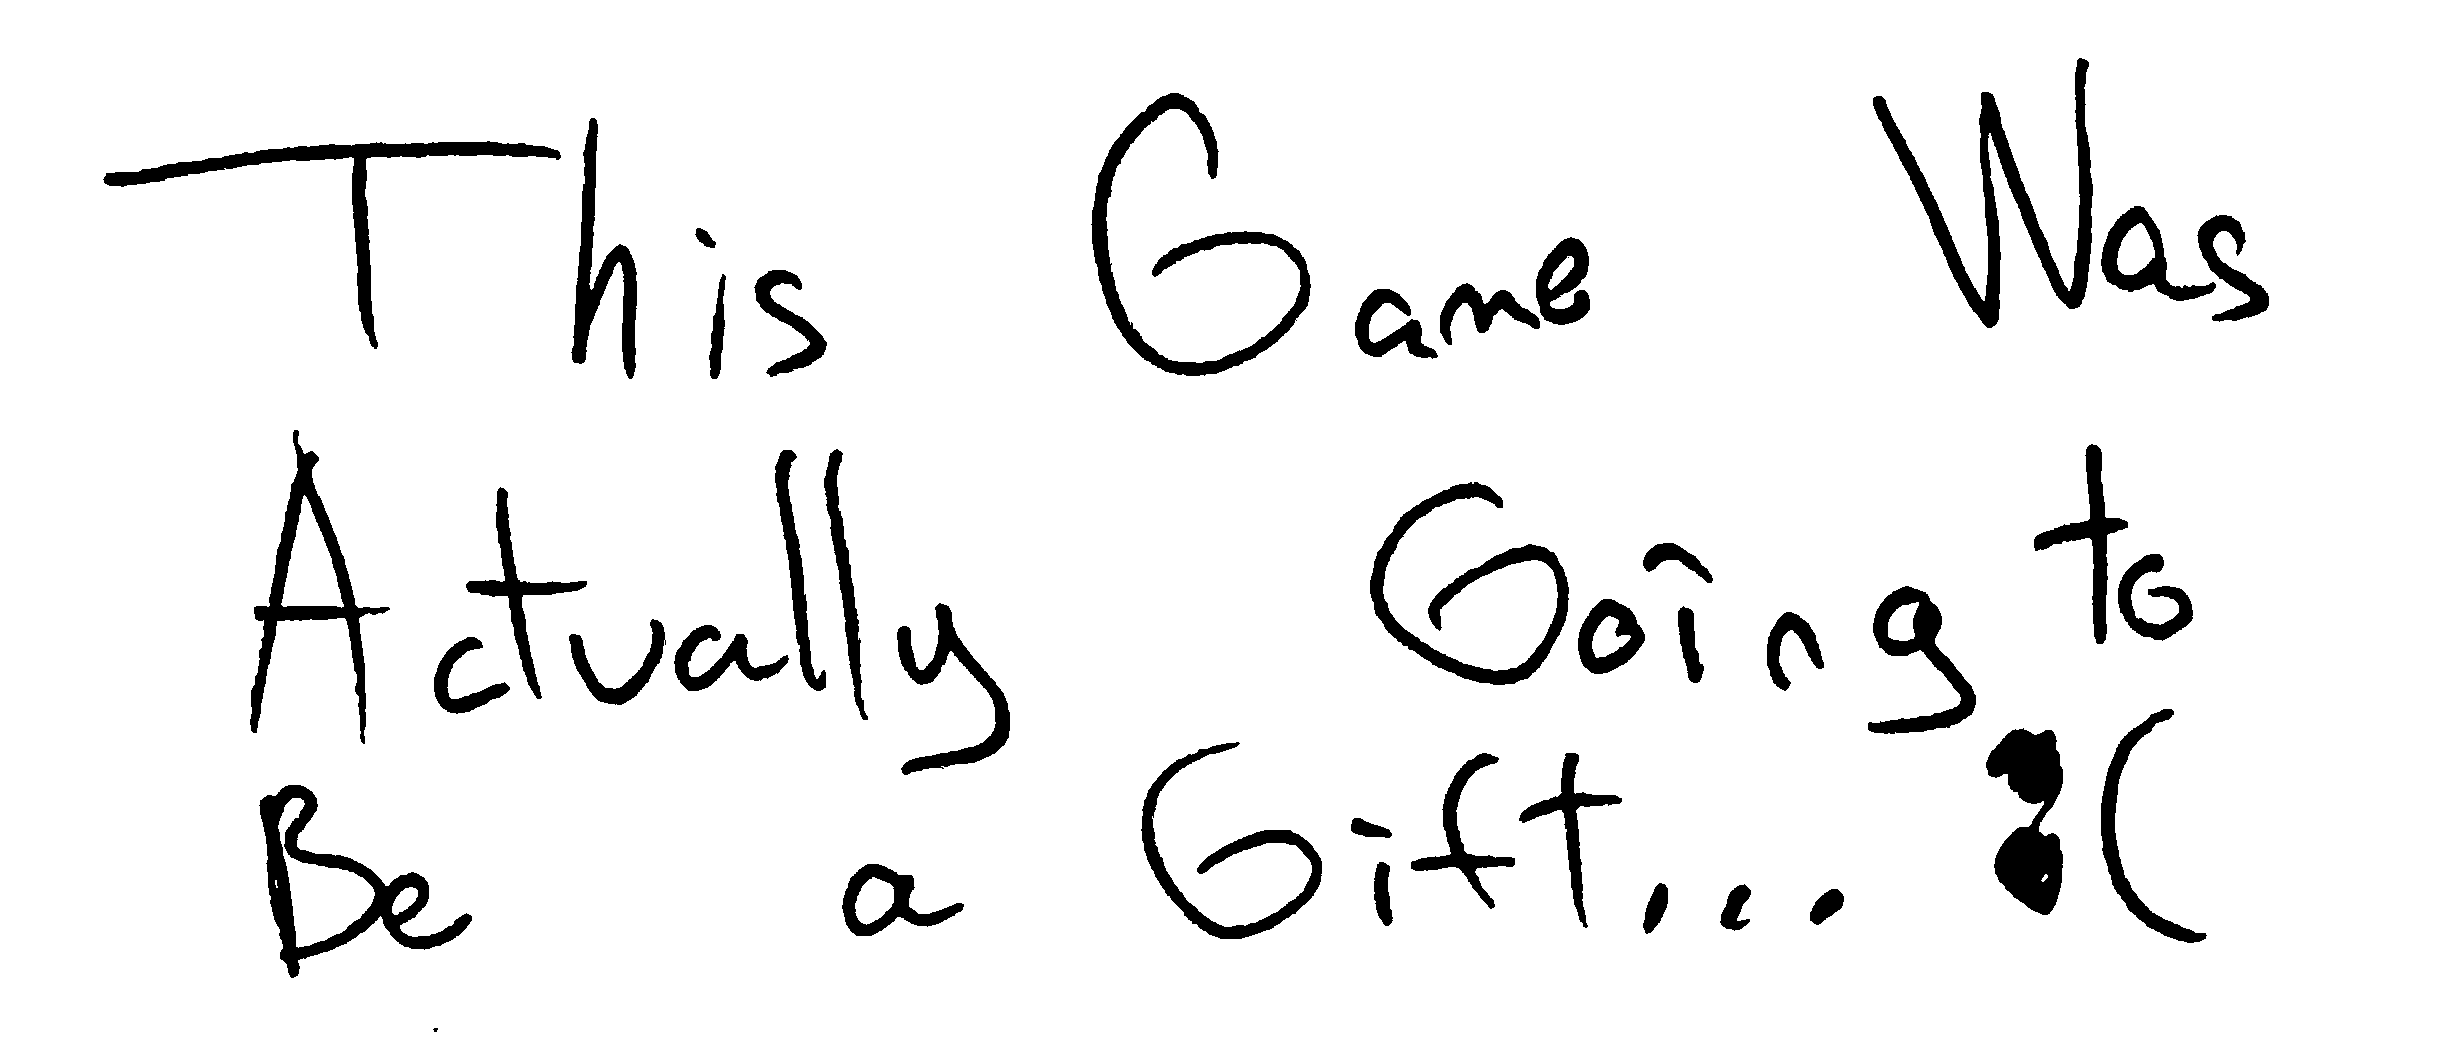 This Game Was
Actually Going to
Be a Gift... :(